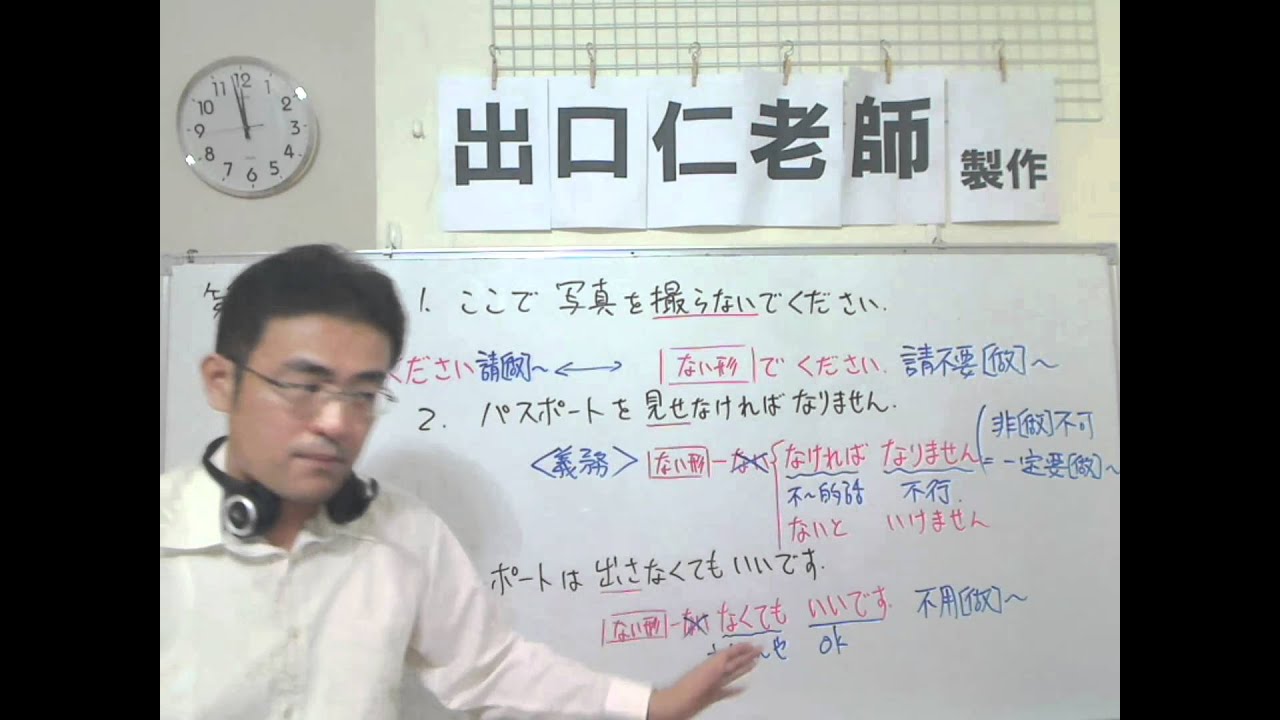 出口仁老師 製作
12 1 2 3 4 5 6 7 8 9 10 11
第
1. ここで 写真を撮らないでください.
ください 請[做]~ ⟷ ない形 でください. 請不要[做]~
2. パスポートを見せなければなりません.
<義務> ない形-ない なければ なりません = 一定要[做]~
非[做]不可
不~的話 不行.
ないと いけません
ポートは 出さなくてもいいです.
ない形-ない なくても いいです. 不用[做]~
也 ok